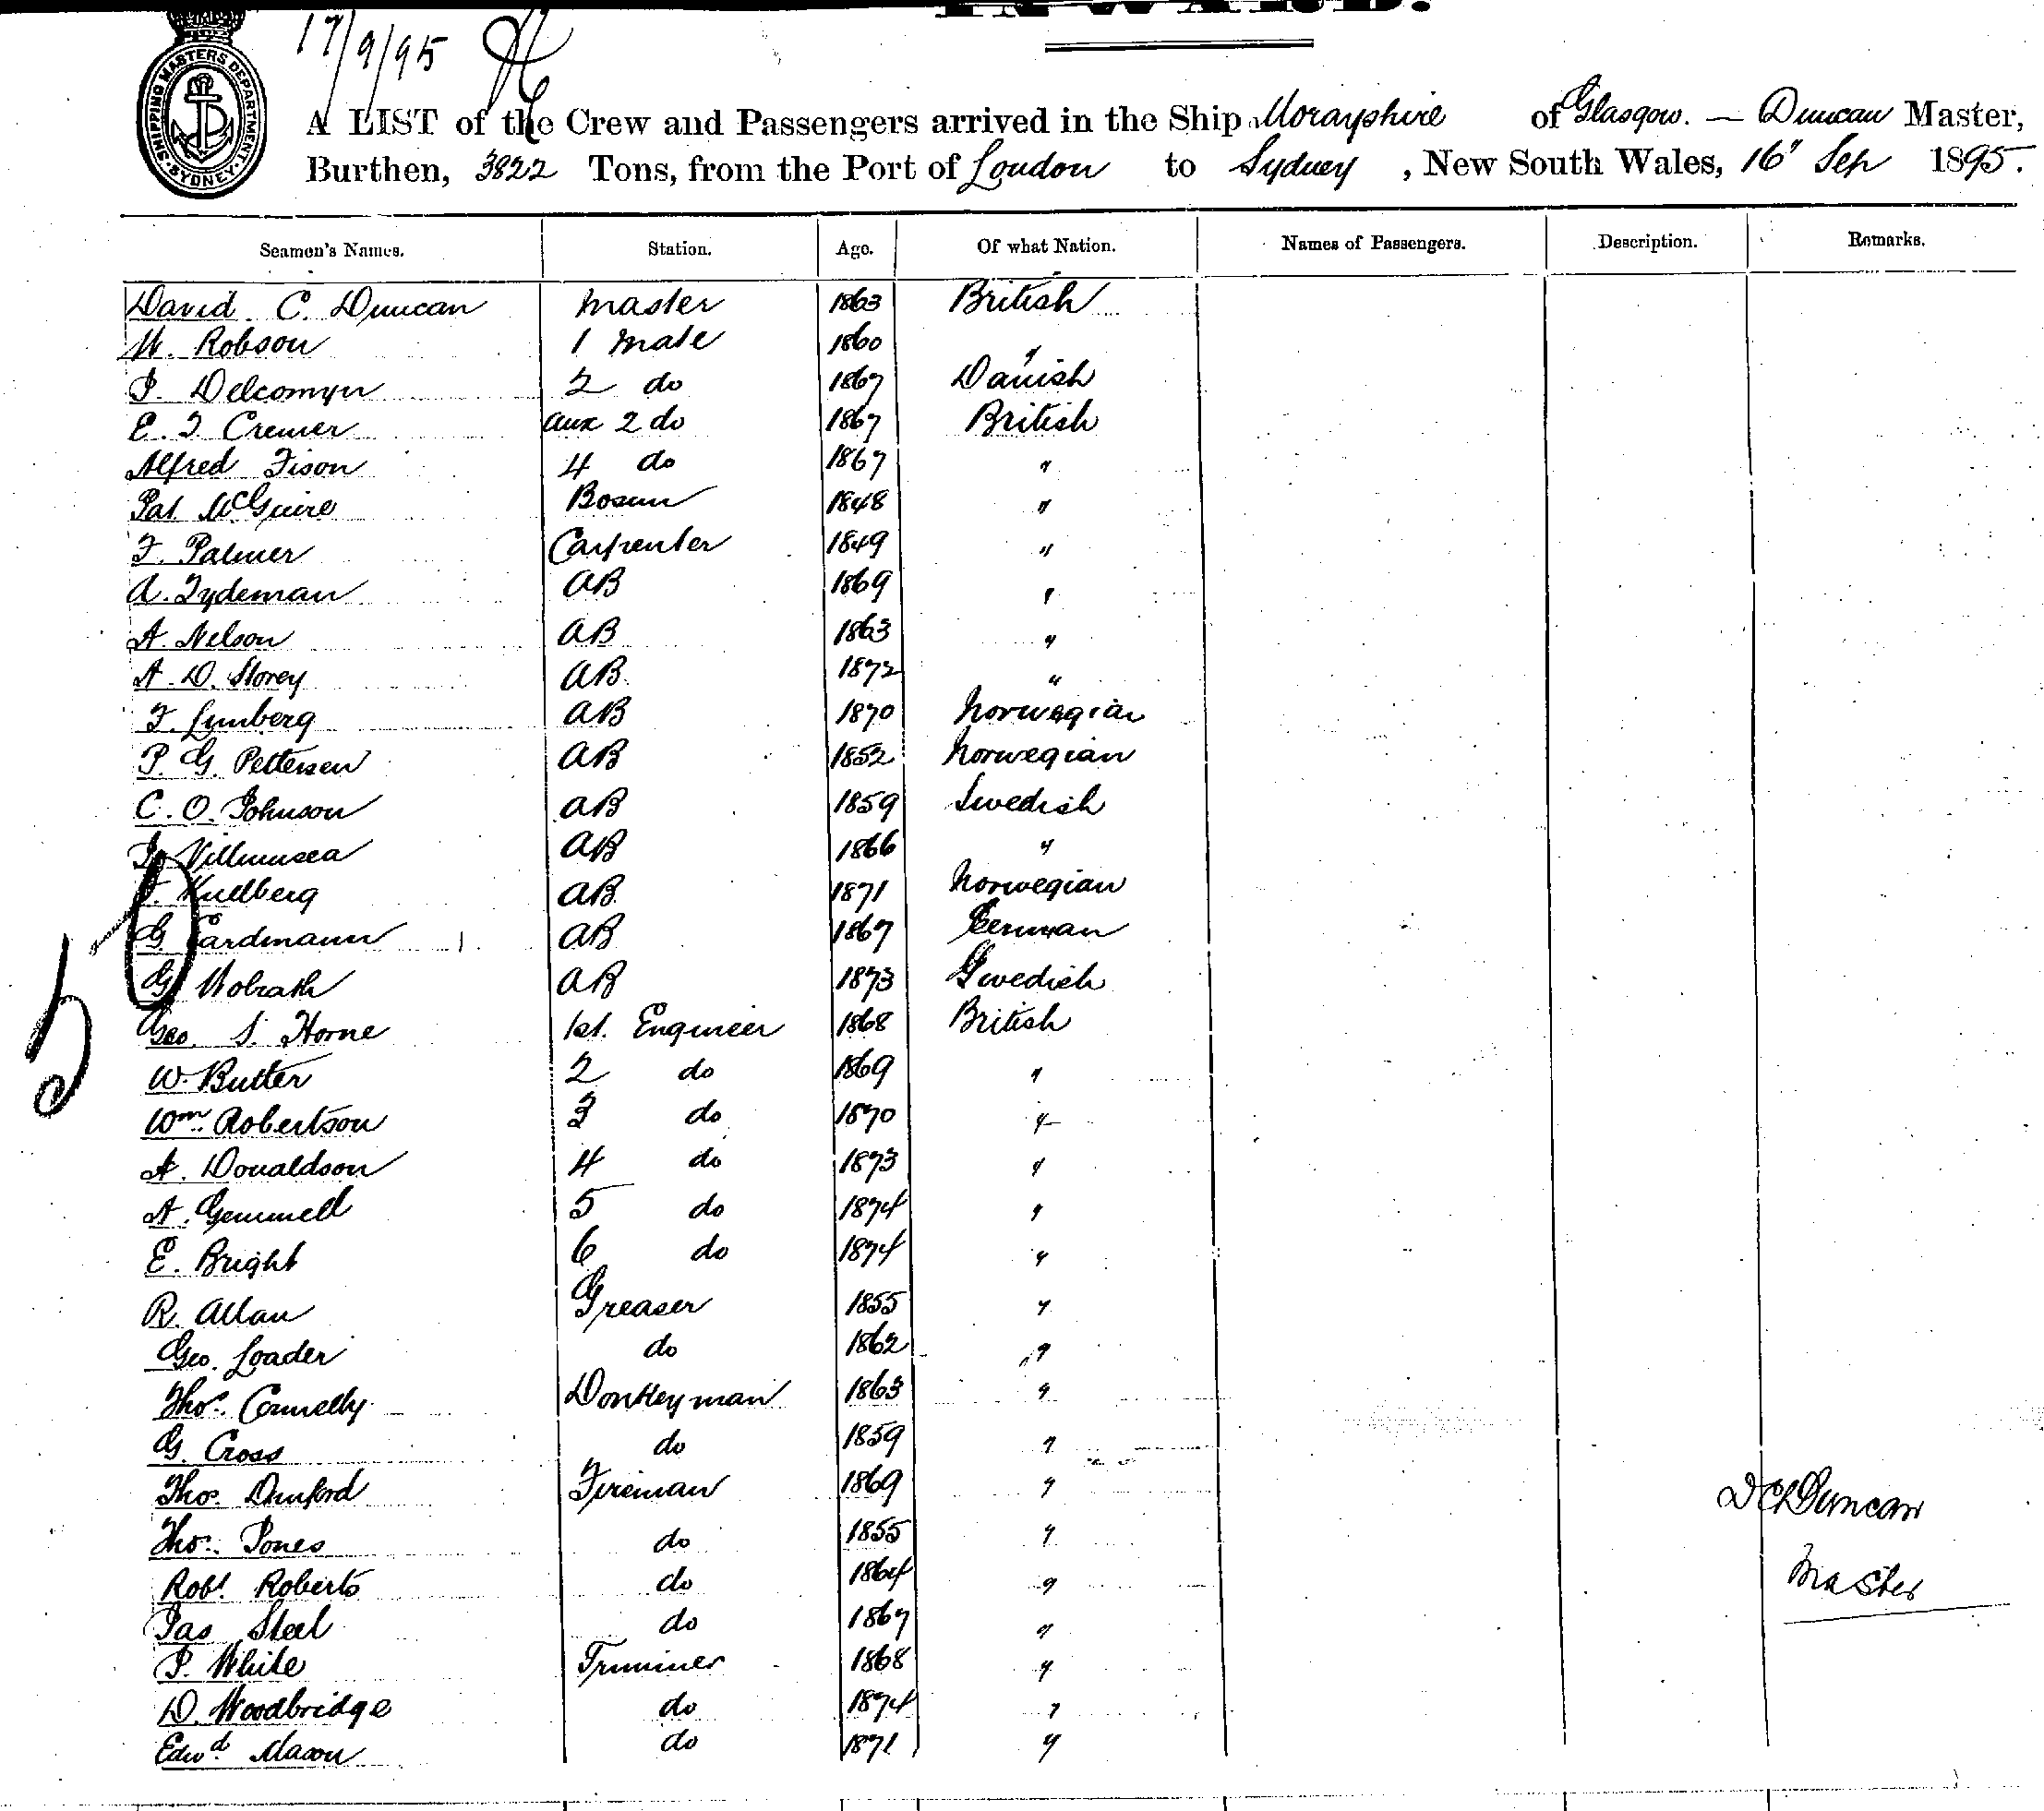 INWARD.
17/9/95
SHIPPING MASTERS DEPARTMENT SYDNEY
A LIST of the Crew and Passengers arrived in the Ship Morayshire of Glasgow. — Duncan Master,
Burthen, 3822 Tons, from the Port of London to Sydney, New South Wales, 16" Sep 1895.
Seamen's Names. Station. Age. Of what Nation. Names of Passengers. Description. Remarks.
David C. Duncan Master 1863 British
W. Robson 1 Mate 1860 "
P. Delcomyn 2 do 1867 Danish
E. J. Cremer aux 2 do 1867 British
Alfred Fison 4 do 1867 "
Pat McGuire Bosun 1848 "
F. Palmer Carpenter 1849 "
A. Tydeman AB 1869 "
A. Nelson AB 1863 "
A. D. Storey AB 1872 "
F. Lumberg AB 1870 Norwegian
P. G. Pettersen AB 1852 Norwegian
C. O. Johnson AB 1859 Swedish
AB 1866 "
AB 1871 Norwegian
G AB 1867 German
G AB 1873 Swedish
Geo. S. Horne 1st. Engineer 1868 British
W. Butter 2 do 1869 "
Wm. Robertson 3 do 1870 "
A. Donaldson 4 do 1873 "
A. Gemmell 5 do 1874 "
E. Bright 6 do 1874 "
R. Allan Greaser 1855 "
Geo. Loader do 1862 "
Thos. Connelly Donkeyman 1863 "
G. Cross do 1859 "
Thos. Dunford Fireman 1869 "
Thos. Jones do 1855 "
Robt. Roberts do 1864 "
Jas Steel do 1867 "
J. White Trimmer 1868 "
D. Woodbridge do 1874 "
Edwd. Mason do 1871 "
50
D C Duncan
Master